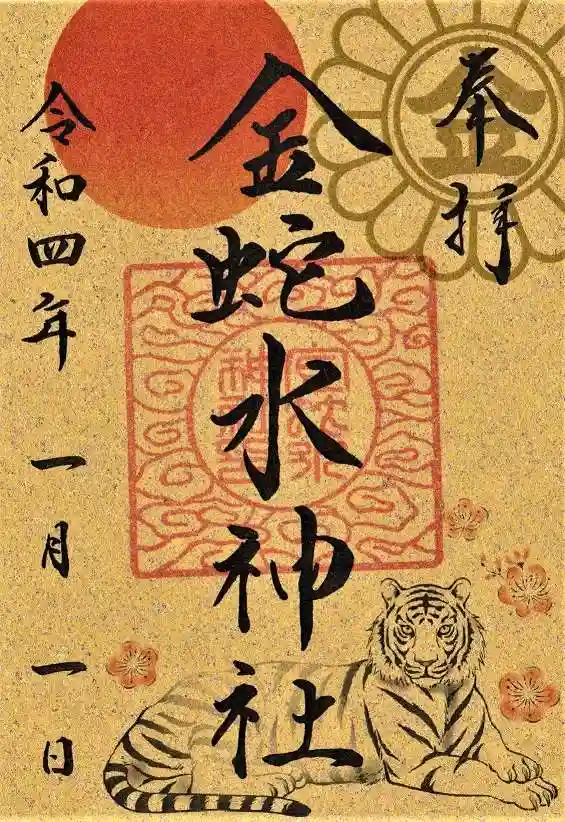 奉拝
金
金蛇水神社
令和四年 一月 一日